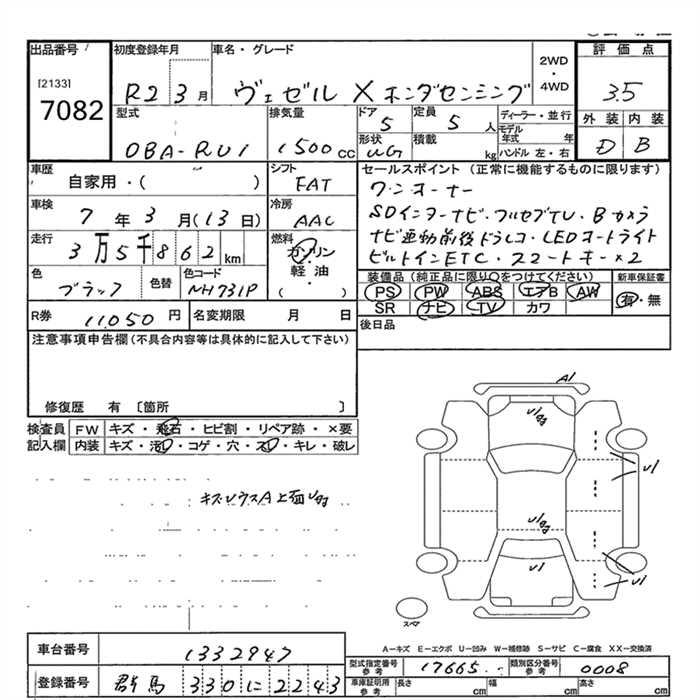 出品番号
[2133]
7082
初度登録年月
R2 3月
車名・グレード
ヴェゼル X ホンダセンシング
2WD
・
4WD
評価点
3.5
外装 内装
D B
型式
DBA-RU1
排気量
1500cc
ドア
5
定員
5人
形状
WG
積載
kg
ディーラー・並行
モデル年式 年
ハンドル 左・右
車歴
自家用・( )
シフト
FAT
車検
7年3月(13日)
冷房
AAC
走行
3万5千862km
燃料
ガソリン
軽油
( )
色
ブラック
色替
色コード
NH731P
セールスポイント(正常に機能するものに限ります)
ワンオーナー
SDインターナビ・フルセグTV・Bカメラ
ナビ連動前後ドラレコ・LEDオートライト
ビルトインETC・スマートキー×2
装備品(純正品に限り○をつけてください)
PS PW ABS エアB AW
SR ナビ TV カワ
新車保証書
有・無
R券 11,050円
名変期限 月 日
後日品
注意事項申告欄(不具合内容等は具体的に記入して下さい)
修復歴 有 〔箇所 〕
検査員 FW キズ・飛石・ヒビ割・リペア跡・×要
記入欄 内装 キズ・汚レ・コゲ・穴・スレ・キレ・破レ
A1
U1
U1
U1
スペア
A―キズ E―エクボ U―凹み W―補修跡 S―サビ C―腐食 XX―交換済
車台番号 1332947
登録番号 群馬 330 に 2243
型式指定番号 参考 17665
類別区分番号 参考 0008
車庫証明用 参考 長さ cm 幅 cm 高さ cm